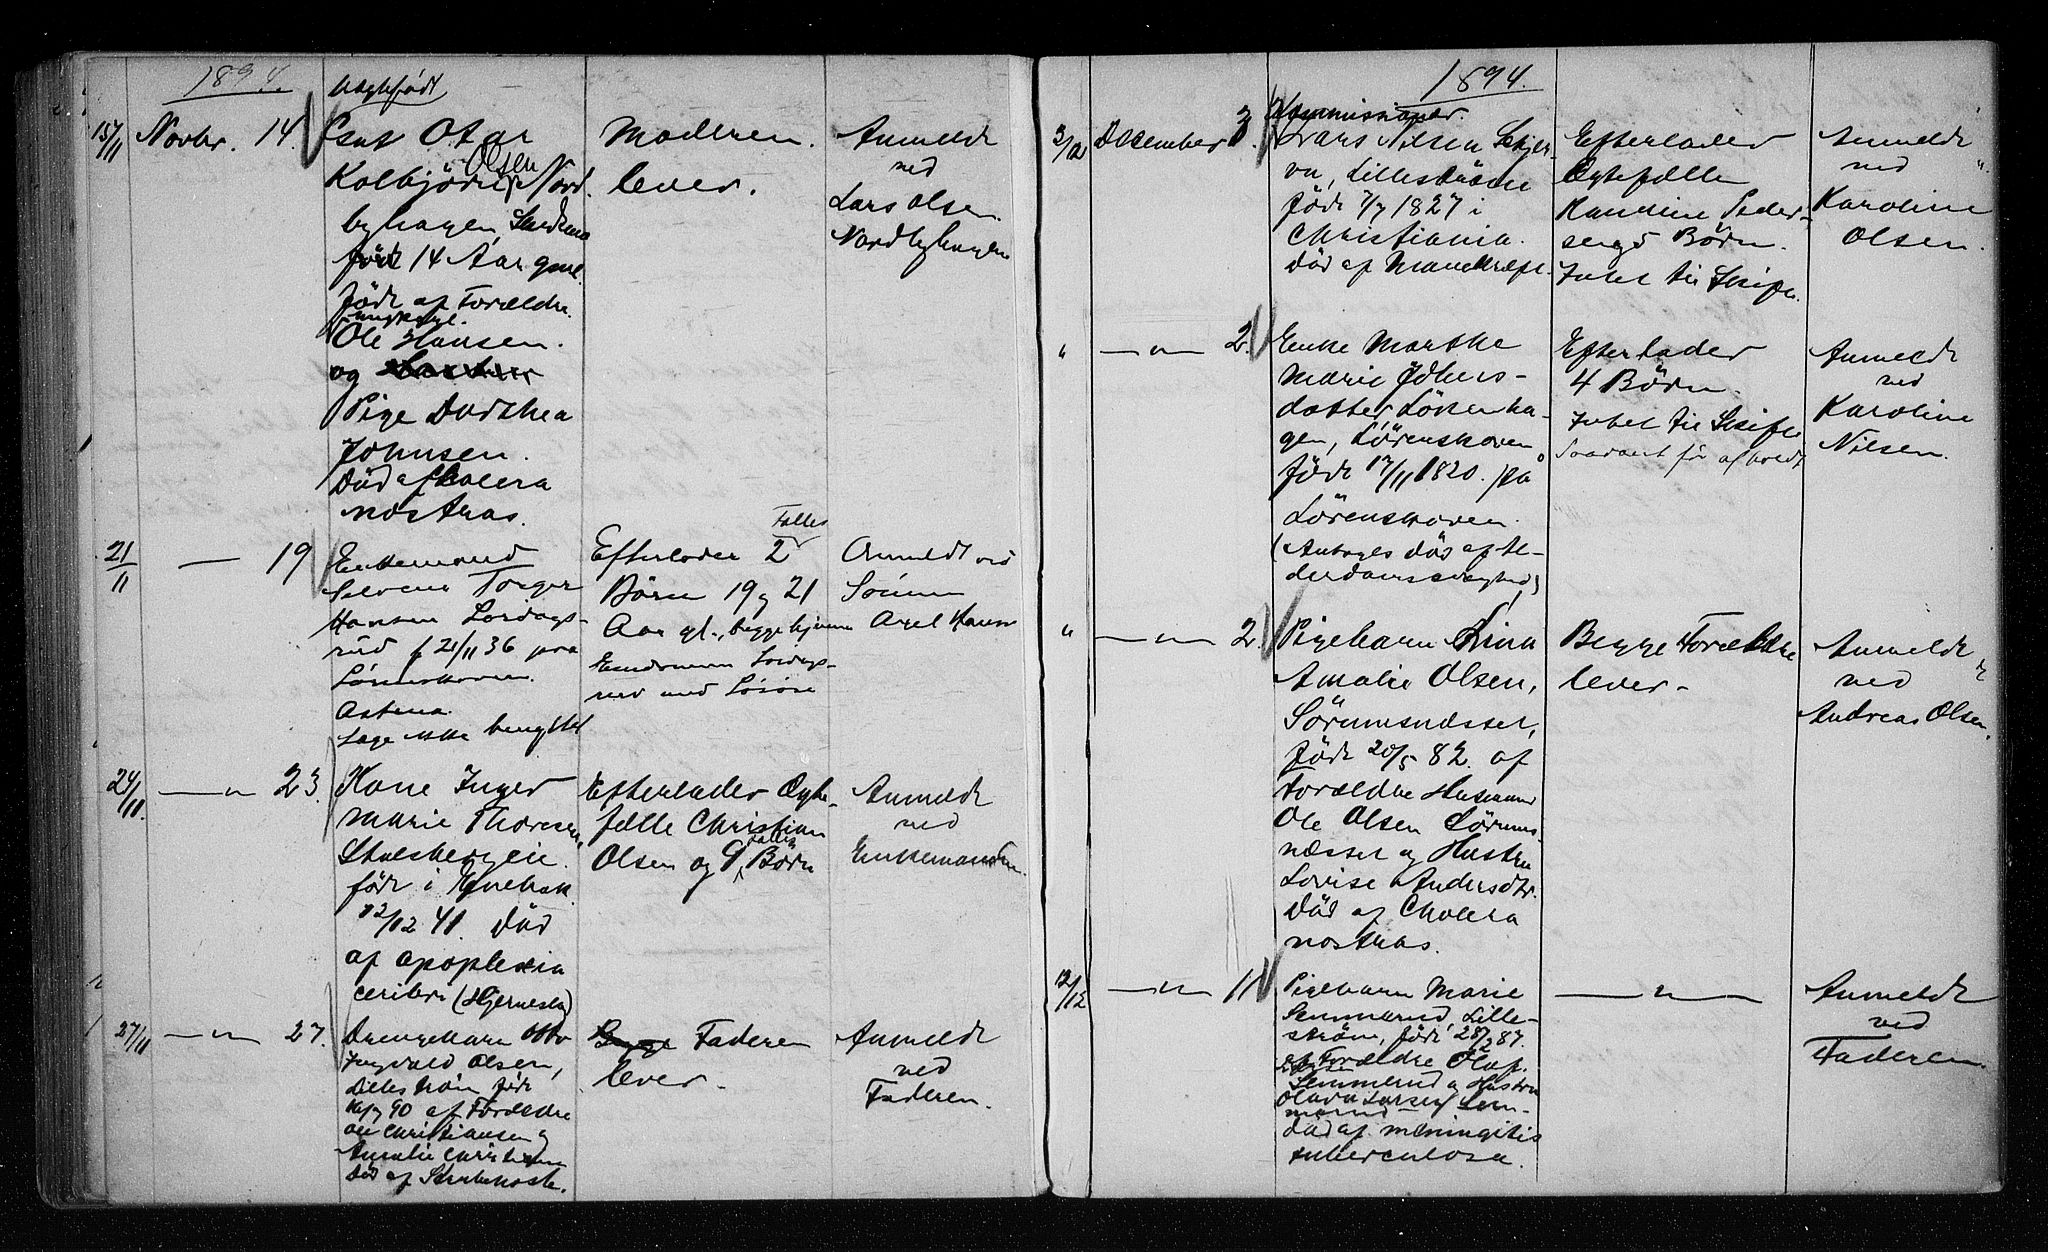 1894.
15/11 Novbr. 14.
uægtefødt
Gut Otar
Kolbjörn Olsen Nord-
byhagen,
født 14 Aar gml.
født af Forældre
ungkarl
Ole Hansen
og
Pige Dorthea
Johnsen.
Död af Colera
nostras.
Moderen
lever.
Anmeldt
ved
Lars Olsen
Nordbyhagen
21/11 — 19
Enkemand
Torger
Hansen Lordags-
rud f 21/11 36 paa
Lørenskoven.
Astma.
Læge ikke benyttet
Efterlader 2 Fælles
Börn 19 og 21
Aar gl., begge hjemme
Eiendommen Lördags-
rud med Lösöre
Anmeldt ved
Sönnen
Axel Hansen
24/11. — " — 23.
Kone Inger
Marie Thoresen
Stalsbergeie.
født i Enebak
12/12 41. Död
af apoplexia
cerebri (Hjerneslag)
Efterlader Ægte-
fælle Christian
Olsen og 9 Fælles Börn
Anmeldt
ved
Enkemanden.
27/11 — " — 27.
Drengebarn Otto
Ingvald Olsen,
Lilleström født
90 af Forældre
Ole Christiansen og
Amalie Christiansen
Död af Strubehoste.
Faderen
lever.
Anmeldt
ved
Faderen.
1894.
3/12 Desember 3.
Kommissionær.
Lars Nilsen Skjer-
va, Lilleström
født 7/7 1827 i
Christiania.
Död af Mavekræft.
Efterlader
Ægtefælle
Kandine Peder-
sen og 5 Börn.
Intet til Skifte.
Anmeldt
ved
Karoline
Olsen.
" — " — 2.
Enke Marthe
Marie Johns-
datter Lökenha-
gen, Lörenskoven
født 17/11 1820. paa
Lörenskoven.
(Antages död af Al-
derdomssvaghed)
Efterlader
4 Börn.
Intet til Skifte
Anmeldt
ved
Karoline
Nilsen.
" — " — 2.
Pigebarn Lina
Amalie Olsen,
Sörumsnæsset,
født 20/5 82. af
Forældre Husmand
Ole Olsen Sörums-
næsset og Hustru
Lovise Andersdtr.
Död af Cholera
nostras.
Begge Forældre
lever.
Anmeldt
ved
Andreas Olsen.
12/12 — " — 11
Pigebarn Marie
Semmerud, Lille-
ström, født 28/2 87.
af Forældre Olaf
Semmerud og Hustru
Olava Larsen Sem-
merud
Död af meningitis
tuberculosa.
— " —
Anmeldt
ved
Faderen.